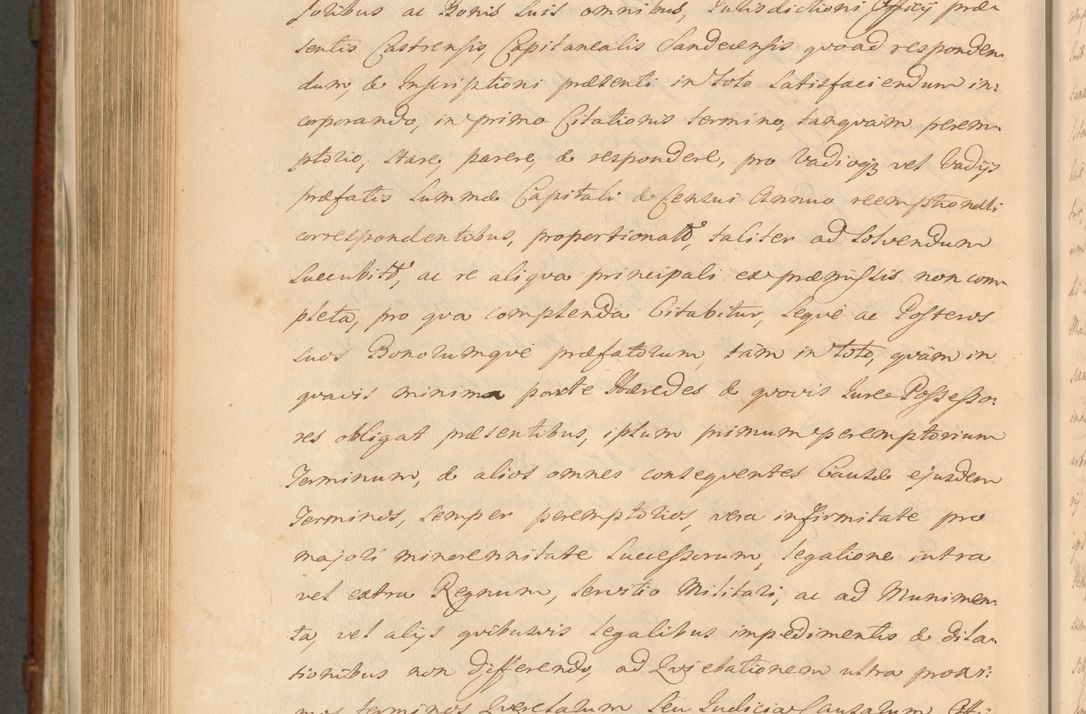 soribus ac Bonis suis omnibus, Iurisdictioni Officij præ
sentis Castrensis, Capitanealis Sandecensis quoad responden
dum, & Inscriptioni præsenti in toto satisfaciendum in:
corporando, in primo Citationis termino, tanquàm perem
ptorio, stare, parere, & respondere, pro Vadioqz vel Vadijs
præfatis Summæ Capitali & Censui Annuo reemptionali
correspondentibus, proportionatô, taliter ad solvendum
succubitô, ac re aliqva principali ex præmissis non com
pleta, pro qva complenda Citabitur, seqve ac Posteros
suos Bonorumqve præfatorum, tàm in toto, qvàm in
qvavis minima parte Hæredes & qvovis Iure Possesso:
res obligat præsentibus, ipsum primum peremptorium
Terminum, & alios omnes conseqventes Causæ ejusdem
Terminos, semper peremptorios, vera infirmitate pro
majori minorennitate Successorum, legatione intra
vel extra Regnum, servitio Militari, ac ad Munimen
ta, vel alijs qvibusvis legalibus impedimentis & dila
tionibus non differendo, ad Qvietationem ultra proxi:
mos terminos Qverelarum seu Iudicia Causarum